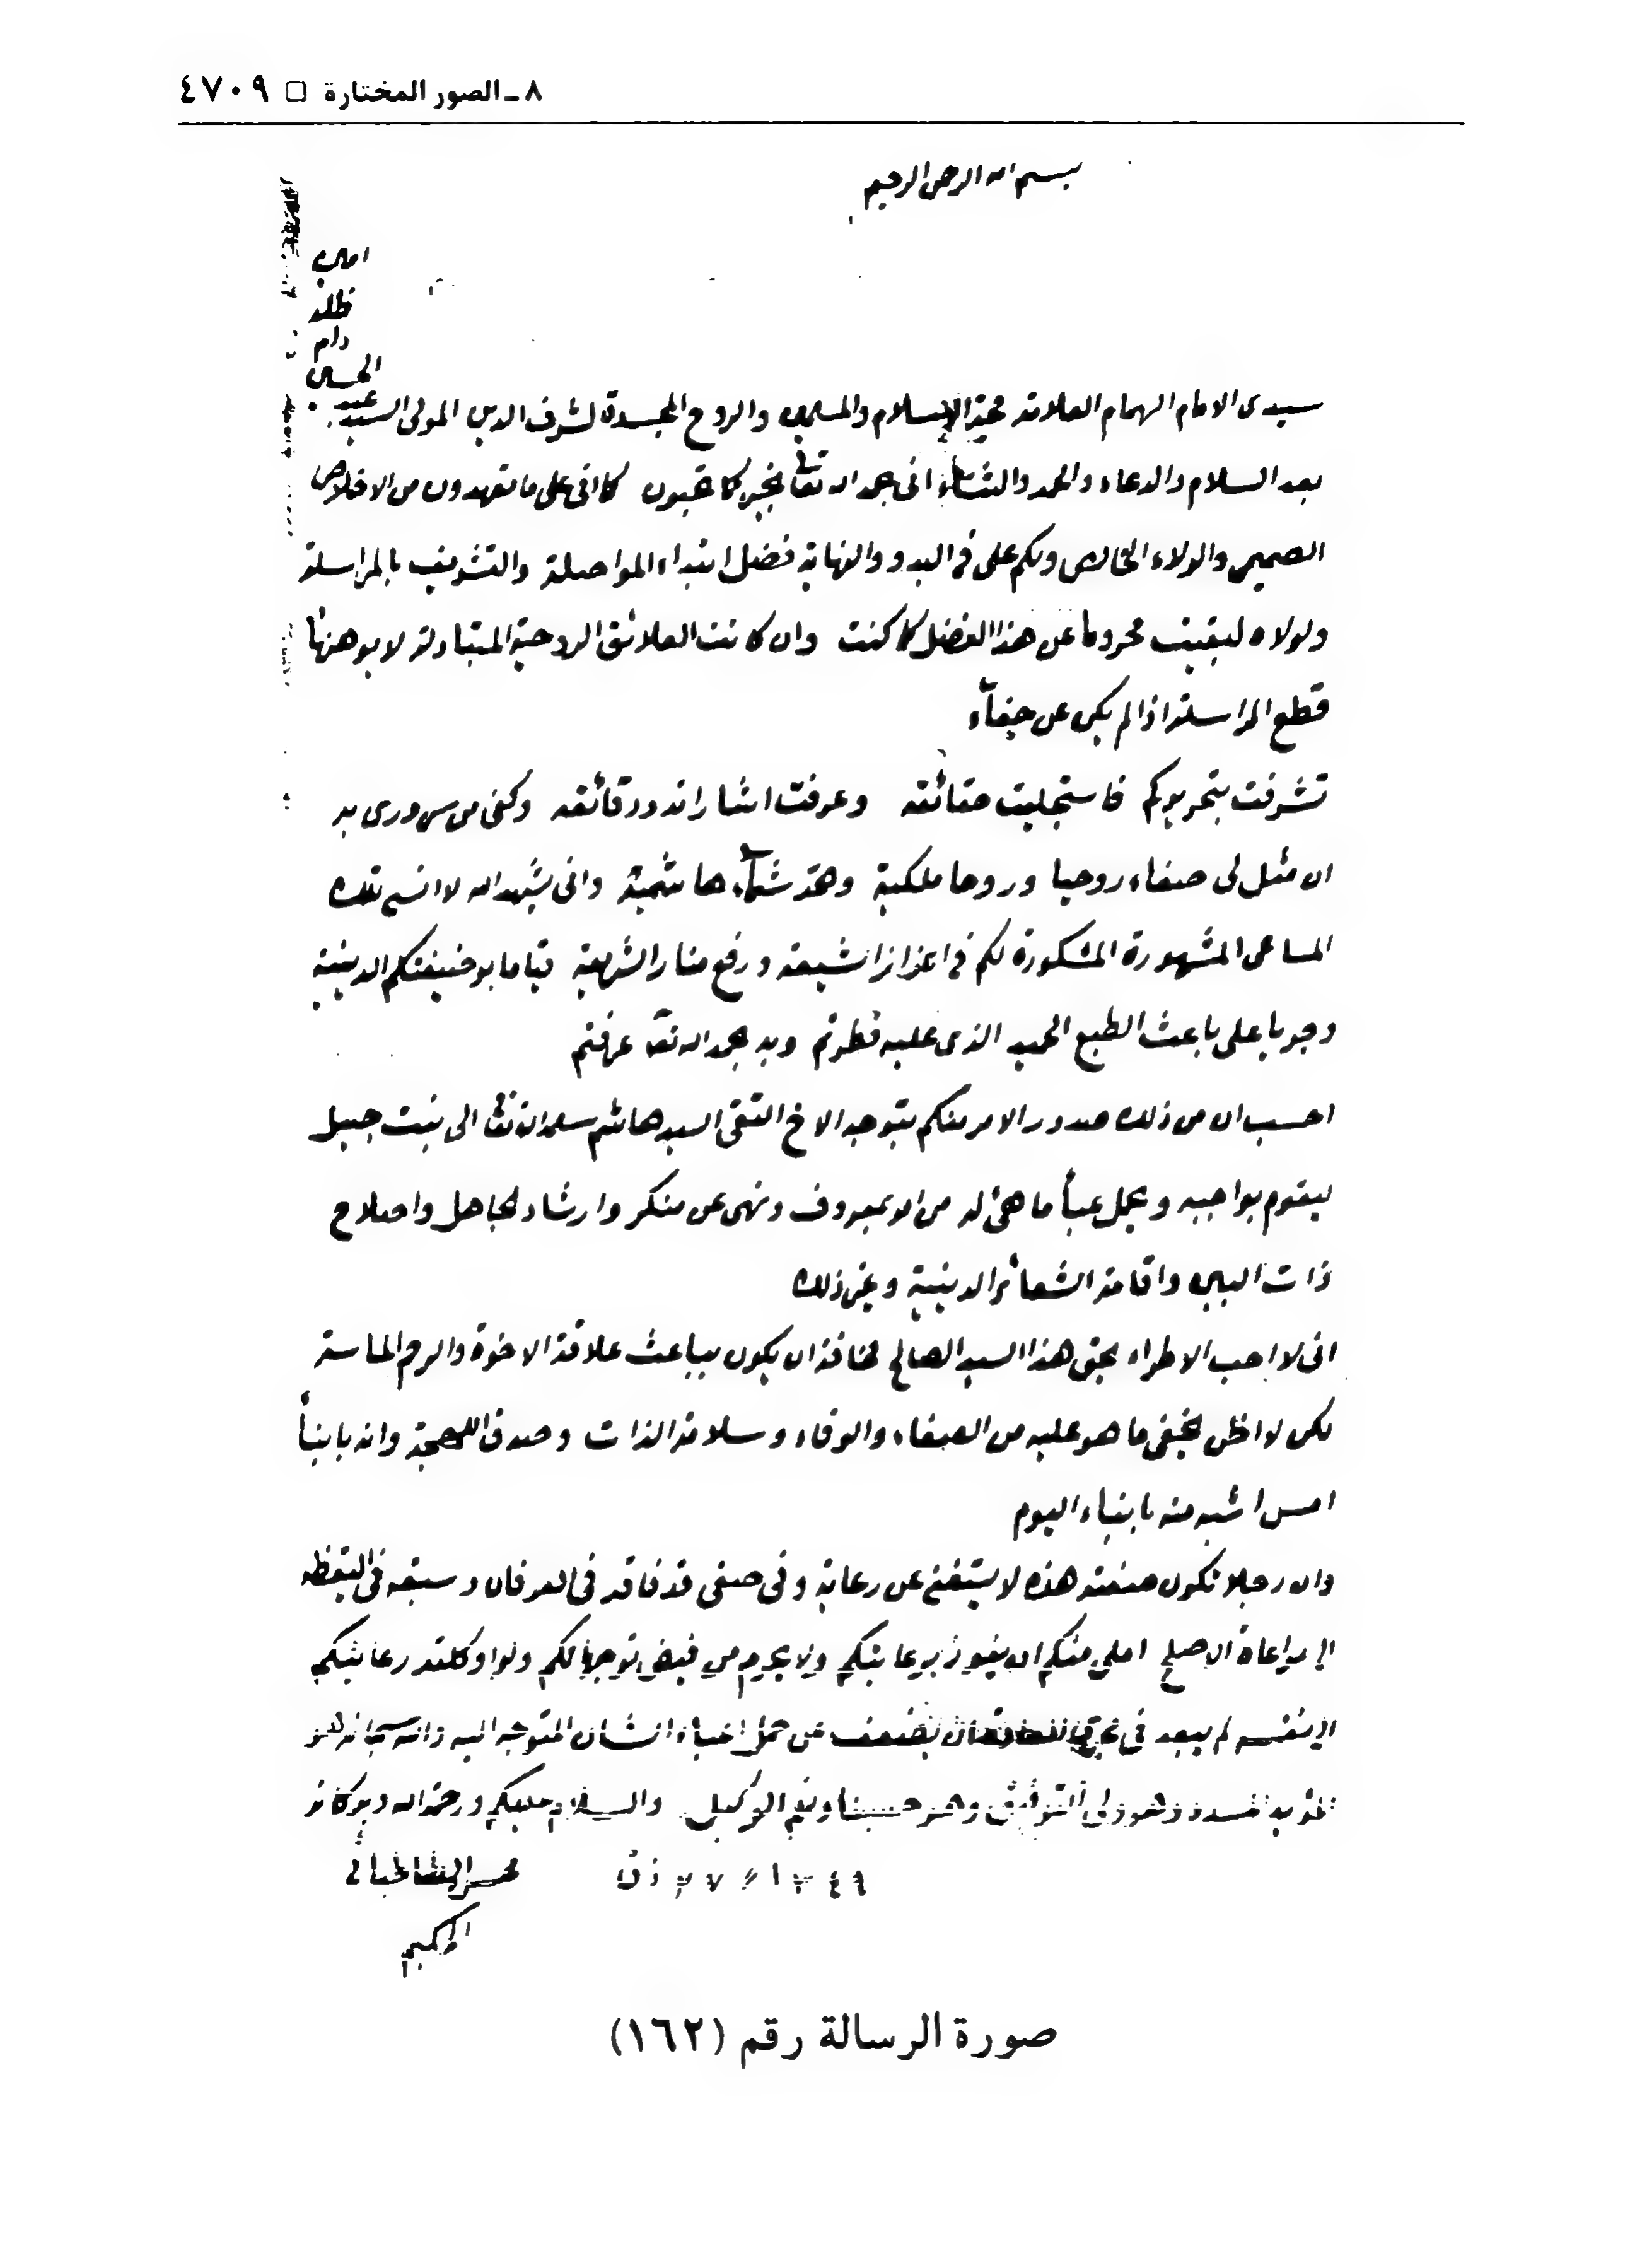 ٨ ـ الصور المختارة □ ٤٧٠٩
بسم الله الرحمن الرحيم
سيدى الامام الهمام العلامة حجة الإسلام والمسلمين والروح المجسدة لشرف الدين المولى السيد عبد
الحسين
دام
ظله
امين
بعد السلام والدعاء والحمد والثناء انى بحمد الله تعا بخير كما تحبون كما انى على ما تعهدون من الاخلاص
الصميم والولاء الخالص ولكم على فى البدو والنهاية فضل ابتداء المواصلة والتشريف بالمراسلة
ولولاه لبقيت محروما عن هذا الفضل كما كنت وان كانت العلائق الروحية المتبادلة لا يوهنها
قطع المراسلة اذا لم يكن عن جفآء
تشرفت بتحريركم فاستجليت حقائقه وعرفت اشاراته ورقائقه وكفى من سرورى به
ان مثل لى صفاء روحيا وروحا ملكية وهمة شماء هاشمية وانى يشهد الله لا انسى تلك
المساعى المشهورة المشكورة لكم فى اعزاز الشيعة ورفع منار الشريعة قياما بوضيفتكم الدينية
وجريا على باعث الطبع الحميد الذى عليه فطرتم وبه بحمد الله تعا عرفتم
احسب ان من ذلك صدور الامر منكم بتوجه الاخ التقى السيد هاشم سلمه الله تعا الى بنت جبيل
ليقوم بواجبه ويحمل عبأ ما هئ له من امر بمعروف ونهى عن منكر وارشاد لجاهل واصلاح
ذات البين واقامة الشعائر الدينية وغير ذلك
انى لا احب الاطراء بحق هذا السيد الصالح مخافة ان يكون بباعث علاقة الاخوة والرحم الماسة
لكن لا اظن يخفى ما هو عليه من الصفاء والوفاء وسلامة الذات وصدق اللهجة وانه بابنأ
امس اشبه منه بابناء اليوم
وان رجلا تكون صفته هذه لا يستغنى عن رعاية وفى صفى قد فاقه فى العرفان وسبقه فى اليقظه
الى مراعاة الاصلح املى منكم ان يفوز برعايتكم ولا يحرم من فيض توجهاتكم ولو اوكلته رعايتكم
الى نفسه لم يبعد فى ان يضعف عن حمل اعباء الشأن المتوجه اليه والله سبحانه هو
المؤيد المسدد وهو ولى التوفيق وهو حسبنا ونعم الوكيل والسلام عليكم ورحمة الله وبركاته
٢٧ ذق ١٣٤٩
محسن الطباطبائى
الحكيم
صورة الرسالة رقم (١٦٢)